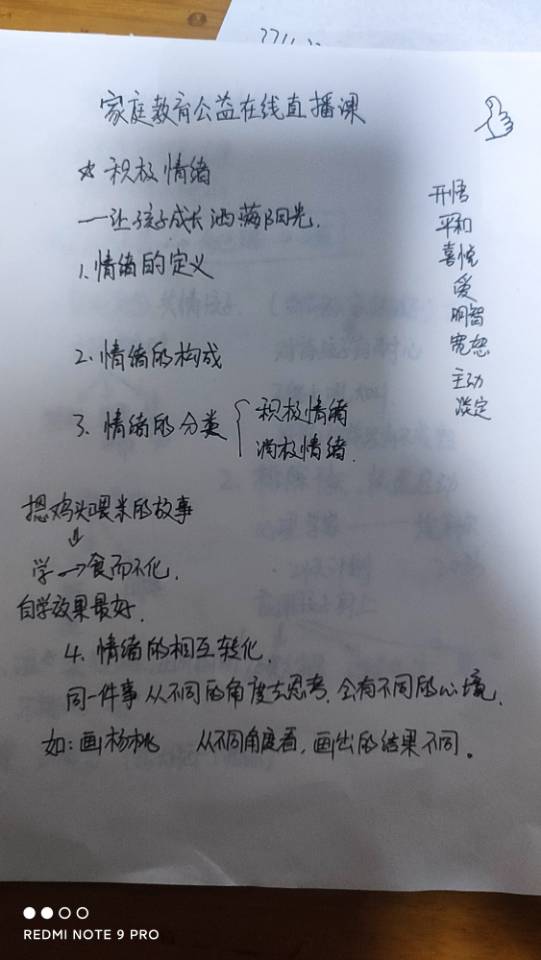 家庭教育公益在线直播课
☆ 积极情绪
—让孩子成长洒满阳光.
1.情绪的定义
2.情绪的构成
3、情绪的分类 { 积极情绪
消极情绪.
摁鸡头喂米的故事
⇓
学→食而不化.
自学效果最好.
4、情绪的相互转化.
同一件事从不同的角度去思考,会有不同的心境.
如:画杨桃 从不同角度看,画出的结果不同。
开悟
平和
喜悦
爱
明智
宽恕
主动
淡定
REDMI NOTE 9 PRO